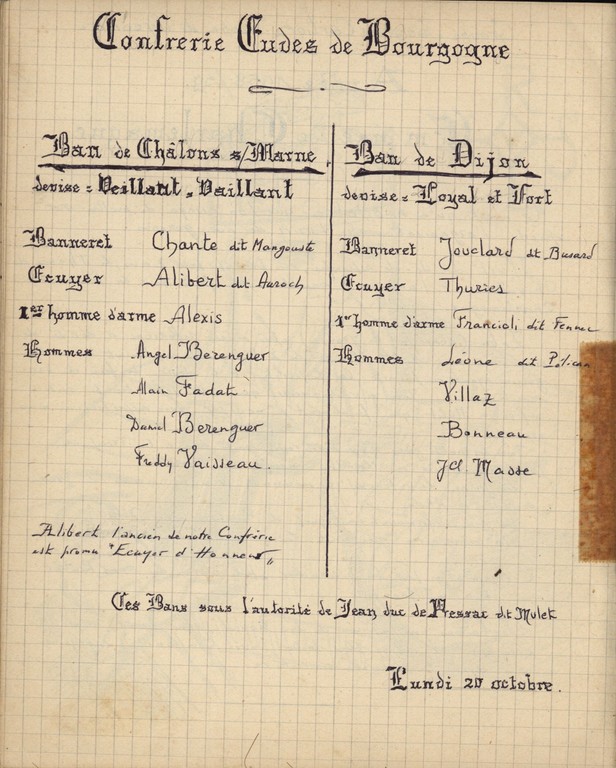 Confrerie Eudes de Bourgogne
Ban de Châlons s/Marne.
devise = Veillant, Vaillant
Banneret Chante dit Mangouste
Ecuyer Alibert dit Auroch
1er homme d'arme Alexis
Hommes Angel Berenguer
Alain Fadat
Daniel Berenguer
Freddy Vaisseau.
Alibert l'ancien de notre Confrérie
est promu "Ecuyer d'Honneur"
Ban de Dijon
devise = Loyal et Fort
Banneret Jouclard dt Busard
Ecuyer Thuries
1er homme d'arme Francioli dit Fennec
Hommes Léone dit Pélican
Villaz
Bonneau
Jcl Masse
Ces Bans sous l'autorité de Jean duc de Pressac dit Mulek
Lundi 20 octobre.